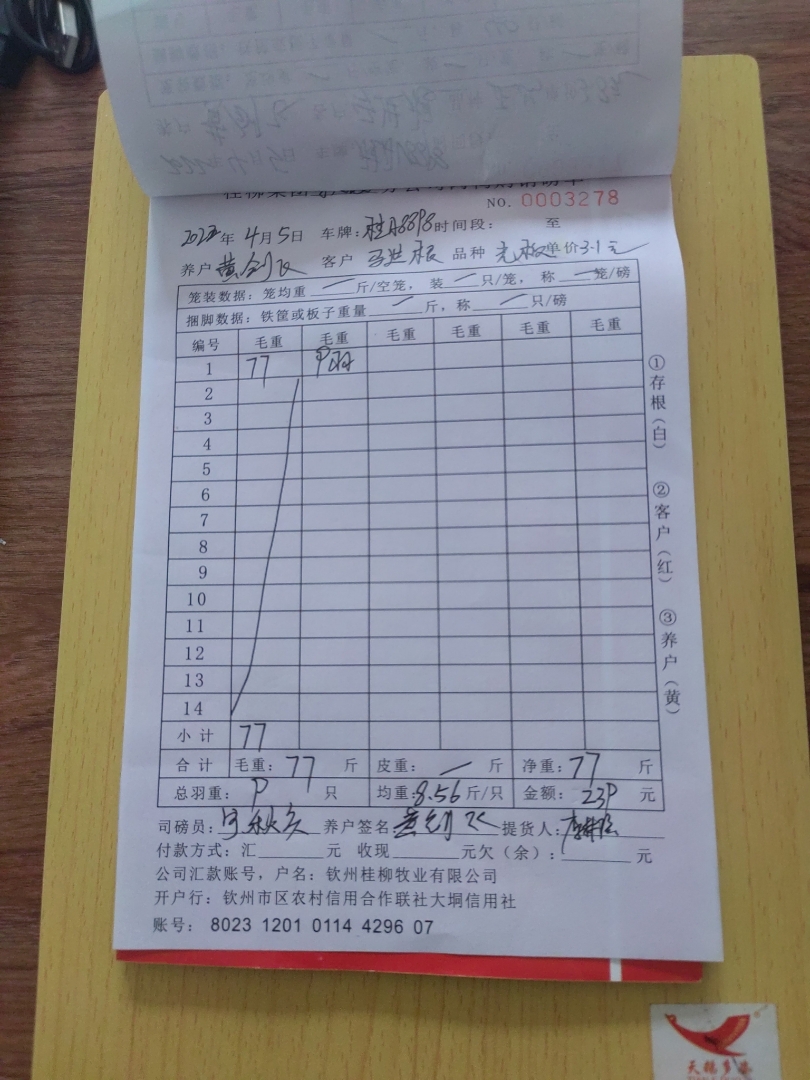 NO. 0003278
2022年 4月5日 车牌:桂A8898 时间段: 至
养户 黄剑飞 客户 品种 单价3.1元
笼装数据: 笼均重 一 斤/空笼, 装 一 只/笼, 称 一 笼/磅
捆脚数据: 铁筐或板子重量 一 斤, 称 一 只/磅
编号 毛重 毛重 毛重 毛重 毛重 毛重
1 77 9羽
2
3
4
5
6
7
8
9
10
11
12
13
14
小计 77
合计 毛重: 77 斤 皮重: 一 斤 净重: 77 斤
总羽重: 9 只 均重: 8.56 斤/只 金额: 239 元
司磅员: 养户签名: 黄剑飞 提货人:
付款方式: 汇 元 收现 元欠(余): 元
公司汇款账号, 户名: 钦州桂柳牧业有限公司
开户行: 钦州市区农村信用合作联社大垌信用社
账号: 8023 1201 0114 4296 07
①存根(白)
②客户(红)
③养户(黄)